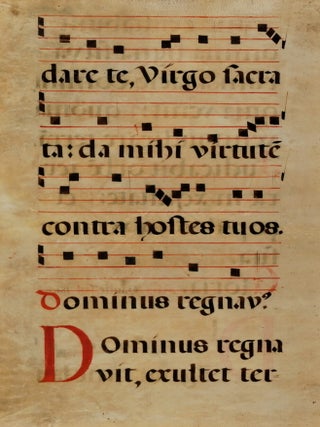 dare te, Virgo sacra
ta: da mihi virtutē
contra hostes tuos.
Dominus regnavꝰ
Dominus regna
vit, exultet ter